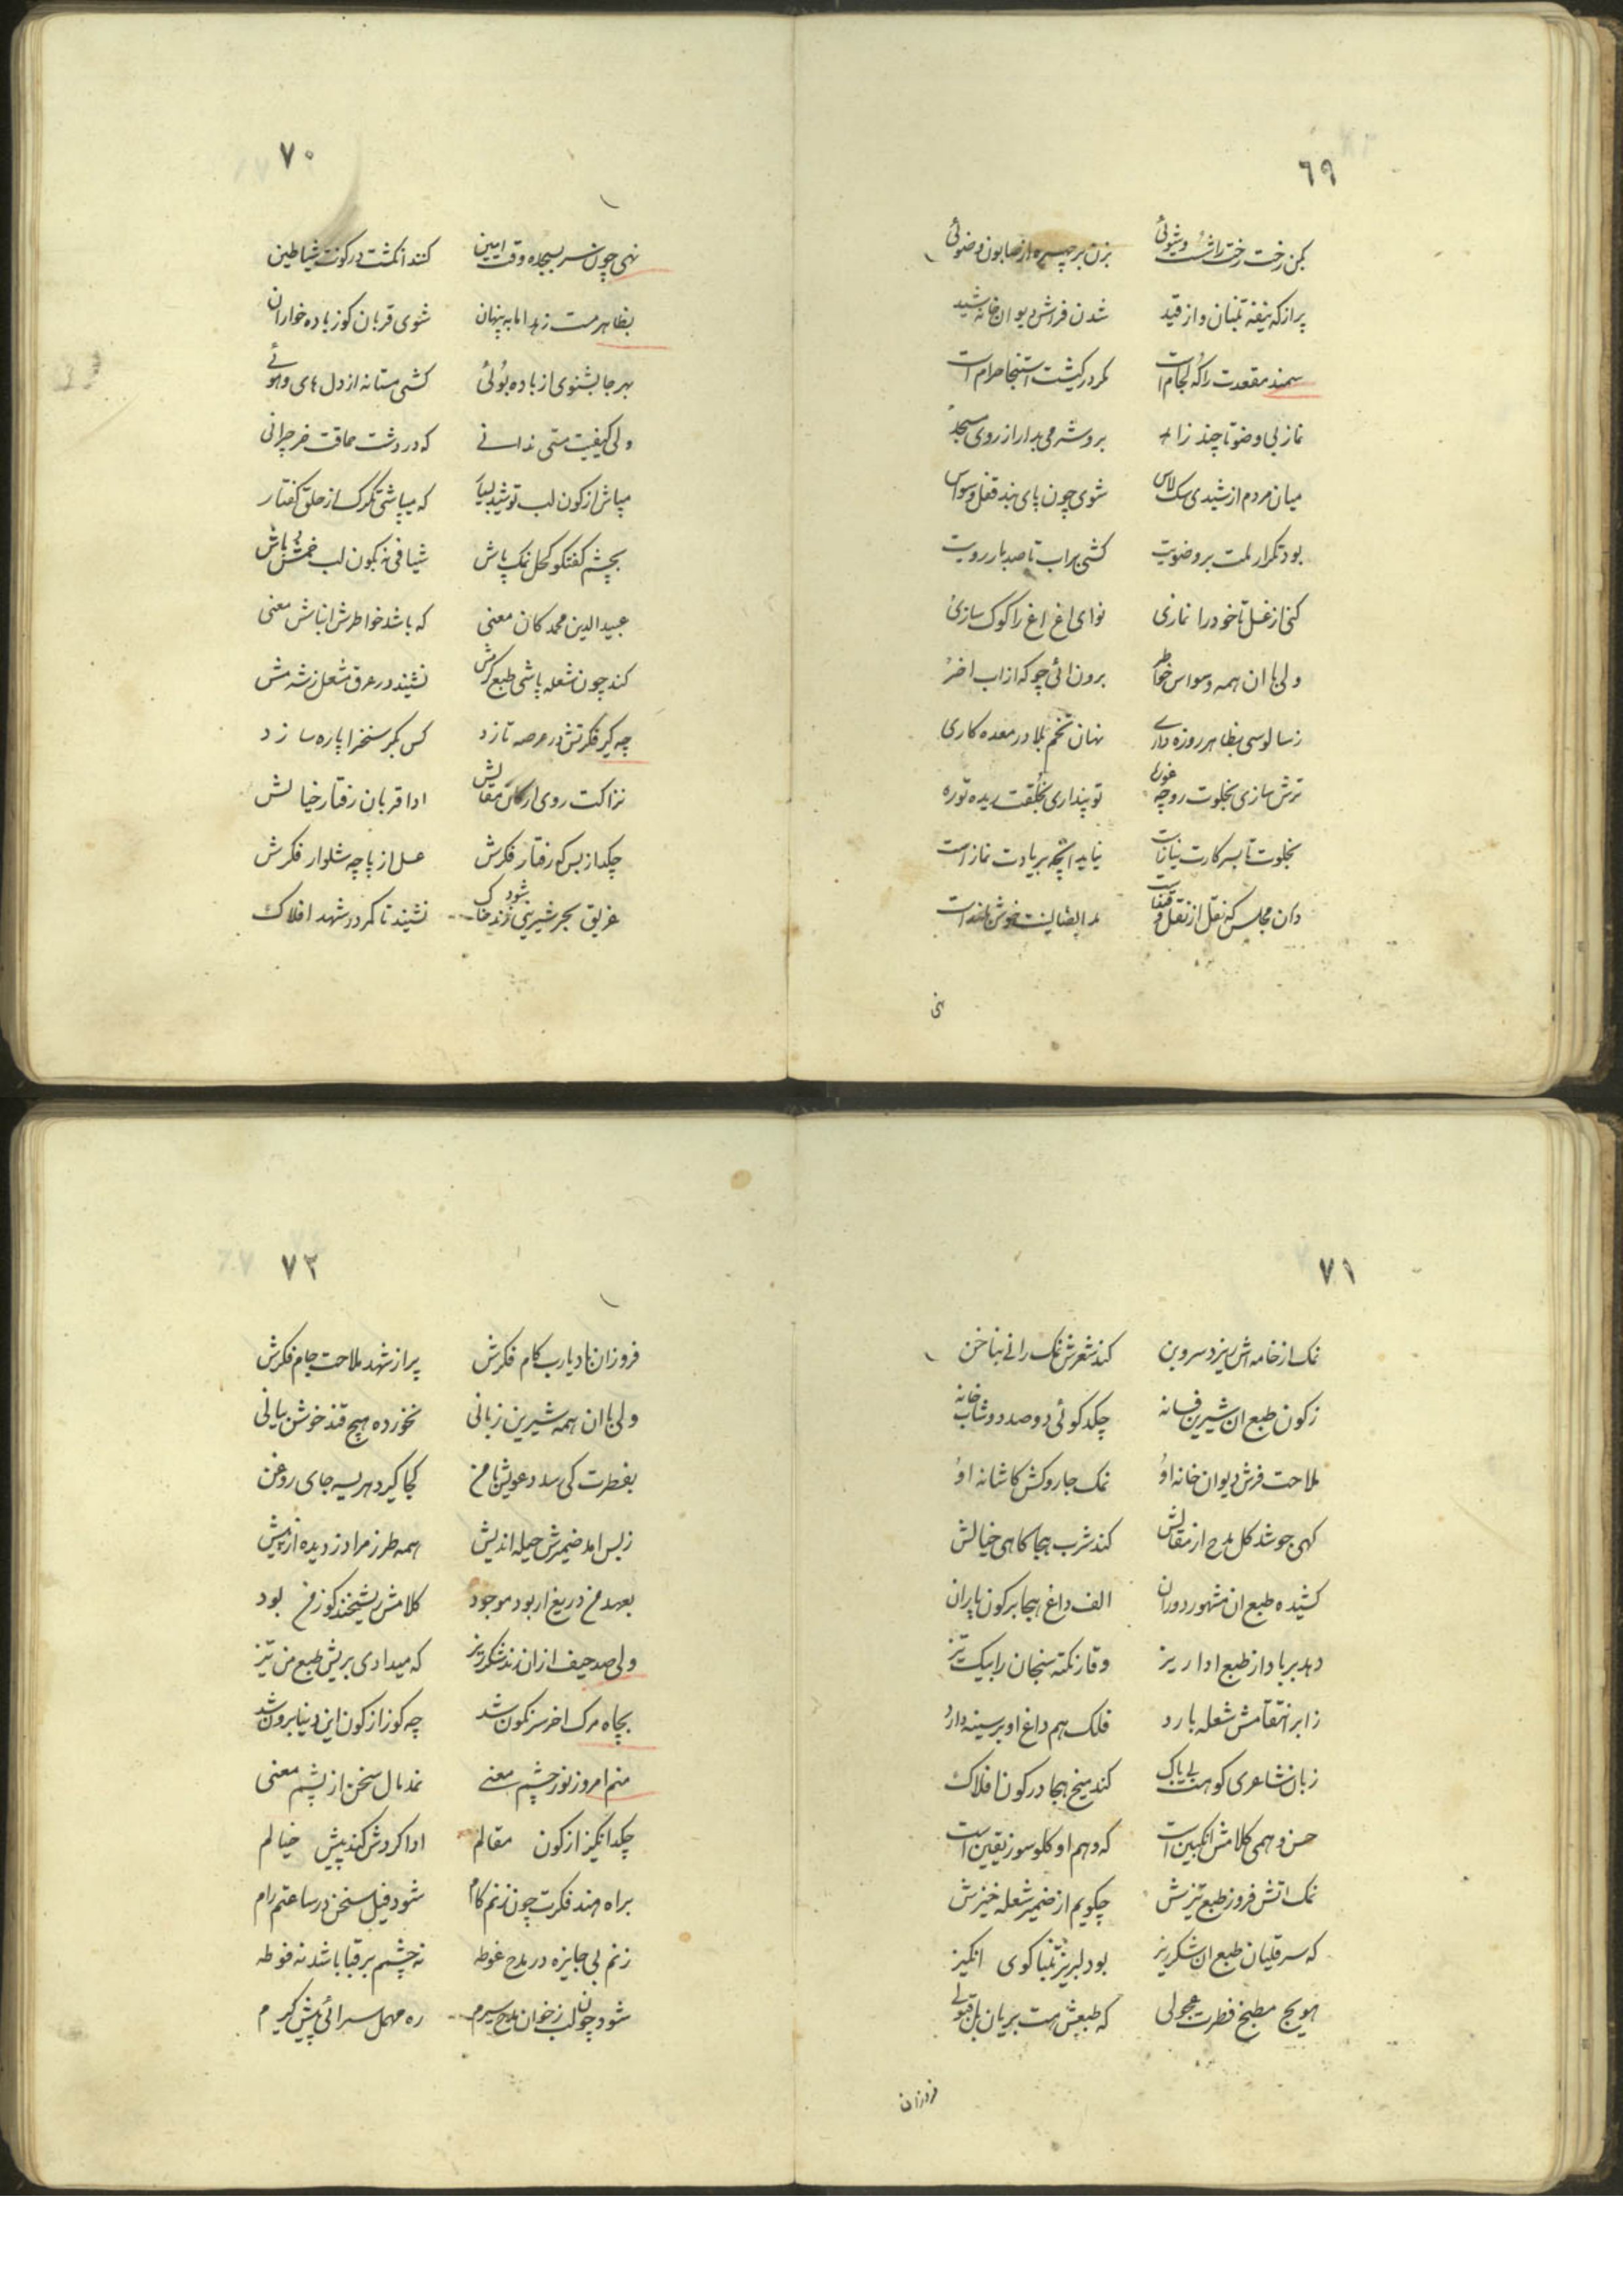 ٦٩
بکن رخت رختراشست وشوئی بزن بر چهره از صابون وضوئی
پر از که نیفه تنبان و از قید شدن فراش دیوان خانه شید
سمند مقعدت را که لجام است مکر در کیشت استنجا حرام است
نماز بی وضو تا چند زاهد بروشرمی بدار از روی مسجد
میان مردم از شیدی سک لاس شوی چون پای بند قفل وسواس
بود تکرار لمت بر وضویت کشی براب تا صد بار رویت
کنی از غسل تا خود را نمازی نوای اغ اغ را کوک سازی
ولی با ان همه وسواس خواطر برون ائی چو که از اب اخر
ز سالوسی بظاهر روزه داری نهان تخم بلا در معده کاری
ترش سازی بخلوت رو چه غوره تو پنداری بخلقت ریده توره
بخلوت تا بسر کارت نیاز است نیاید انچه بریادت نماز است
دان مجلس که نقل از نقل و
نی
٧٠
نهی چون سر بسجده وقت امین کنند انکشت در کونت شیاطین
بظاهر مست زهد اما به پنهان شوی قربان کوز باده خواران
بهر جا بشنوی از باده بوئی کشی مستانه از دل های وهوئے
ولی کیفیت مستی ندانے که در دشت حماقت خر چرانی
مپاش از کون لب توشید بسیار که میپاشی تکرک از حلق کفتار
بچشم کفتکو کحل نمک پاش شیافی نه بکون لب خمش باش
عبید الدین محمد کان معنی که باشد خواطرش انباش معنی
کند چون شعله پاشی طبع کرمش نشیند در عرق مشعل ز شرمش
چه کیر فکرتش در عرصه تازد کس بکر سخنرا پاره سازد
نزاکت روی از کان مقالش ادا قربان رفتار خیالش
چکد از بس که رفتار فکرش عسل از پاچه شلوار فکرش
غریق بحر شیرینی شود نشیند تا کمر در شهد افلاک
٧١
نمک از خامه اش ریزد سر و بن کند شعرش نمک رانے بناخن
ز کون طبع ان شیرین فسانه چکد کوئی دو صد دوشاب خانه
ملاحت فرش دیوان خانه او نمک جاروکش کاشانه او
کهی جوشد کل مدح از مقالش کند شرب هجا کاهی خیالش
کشیده طبع ان مشهور دوران الف داغ هجا بر کون یاران
دهد بر باد از طبع ادا ریز وقار نکته سنجان را بیک تیز
ز ابر انتقامش شعله بارد فلک هم داغ او بر سینه دارد
زبان شاعری کو هست بی باک کند میخ هجا در کون افلاک
حسن وهمی کلامش انکبین است که وهم او کلوسوز یقین است
نمک اتش فروز طبع تیزش چکویم از ضمیر شعله خیزش
که سر قلیان طبع ان شکرریز بود لبریز تنباکوی انکیز
هویج مطبخ فطرت عجولی که طبعش هست بریان
فروزان
٧٢
فروزان باد یارب کام فکرش پر از شهد ملاحت جام فکرش
ولی با ان همه شیرین زبانی نخورده هیچ قند خوش بیانی
بفطرت کی رسد دعویش با من کجا کیرد هریسه جای روغن
ز بس امد ضمیرش حیله اندیش همه طرز مرا دزدیده از پیش
بعهد من دریغ ار بود موجود کلامش ریشخند کوز من بود
ولی صد حیف از ان رند شکرریز که میدادی بریش طبع من تیز
بچاه مرک اخر سرنکون شد چه کوز از کون این دنیا برون شد
منم امروز نور چشم معنے نمد مال سخن از پشم معنی
چکد انکیز از کون مقالم ادا کردش کند پیش خیالم
براه هند فکرت چون زنم کام شود فیل سخن در ساعتم رام
زنم بی جایزه در مدح غوطه نه چشمم بر قبا باشد نه فوطه
شود چون لب ز خوان مدح سیرم ره مهمل سرائی پیش کیرم